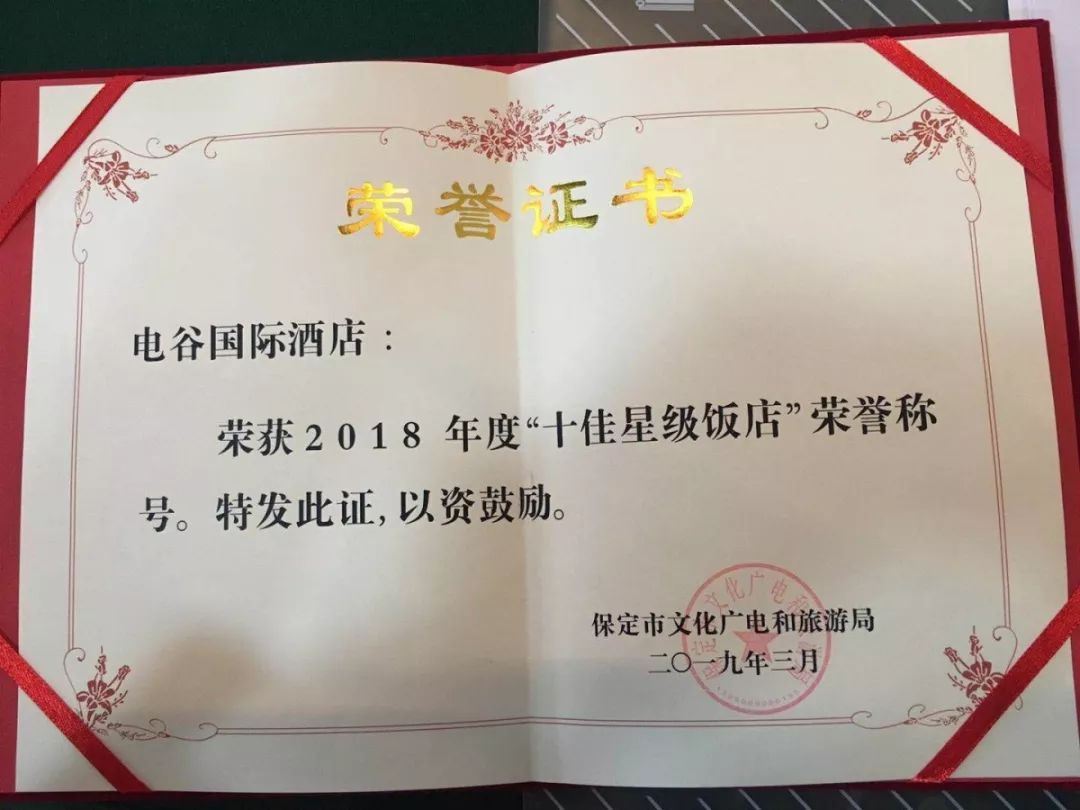 荣誉证书
电谷国际酒店：
荣获2018 年度“十佳星级饭店”荣誉称
号。特发此证,以资鼓励。
保定市文化广电和旅游局
二〇一九年三月